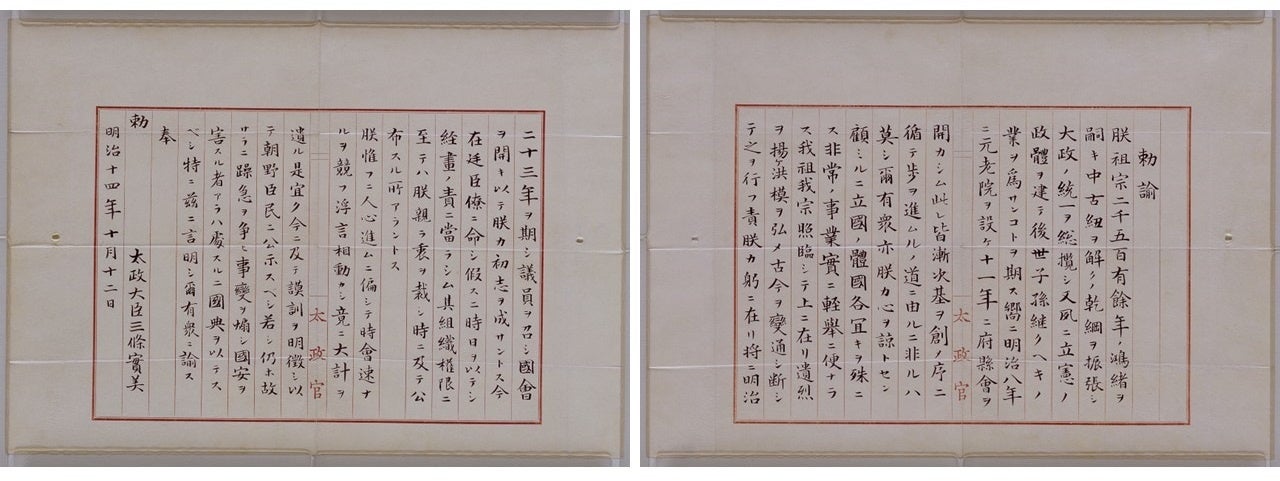 勅諭
朕祖宗二千五百有餘年ノ鴻緒ヲ
嗣キ中古紐ヲ解クノ乾綱ヲ振張シ
大政ノ統一ヲ総攬シ又夙ニ立憲ノ
政體ヲ建テ後世子孫継クヘキノ
業ヲ為サンコトヲ期ス嚮ニ明治八年
ニ元老院ヲ設ケ十一年ニ府縣會ヲ
太政官
開カシム此レ皆漸次基ヲ創メ序ニ
循テ歩ヲ進ムルノ道ニ由ルニ非ルハ
莫シ爾有衆亦朕カ心ヲ諒トセン
顧ミルニ立國ノ體國各宜キヲ殊ニ
ス非常ノ事業實ニ軽舉ニ便ナラ
ス我祖我宗照臨シテ上ニ在リ遺烈
ヲ揚ケ洪模ヲ弘メ古今ヲ變通シ断シ
テ之ヲ行フ責朕カ躬ニ在リ将ニ明治
二十三年ヲ期シ議員ヲ召シ國會
ヲ開キ以テ朕カ初志ヲ成サントス今
在廷臣僚ニ命シ假スニ時日ヲ以テシ
経畫ノ責ニ當ラシム其組織權限ニ
至テハ朕親ラ衷ヲ裁シ時ニ及テ公
布スル所アラントス
朕惟フニ人心進ムニ偏シテ時會速ナ
ルヲ競フ浮言相動カシ竟ニ大計ヲ
太政官
遺ル是宜ク今ニ及テ謨訓ヲ明徴シ以
テ朝野臣民ニ公示スヘシ若シ仍ホ故
サラニ躁急ヲ争ヒ事變ヲ煽シ國安ヲ
害スル者アラハ處スルニ國典ヲ以テス
ヘシ特ニ茲ニ言明シ爾有衆ニ諭ス
奉
勅
太政大臣三條實美
明治十四年十月十二日